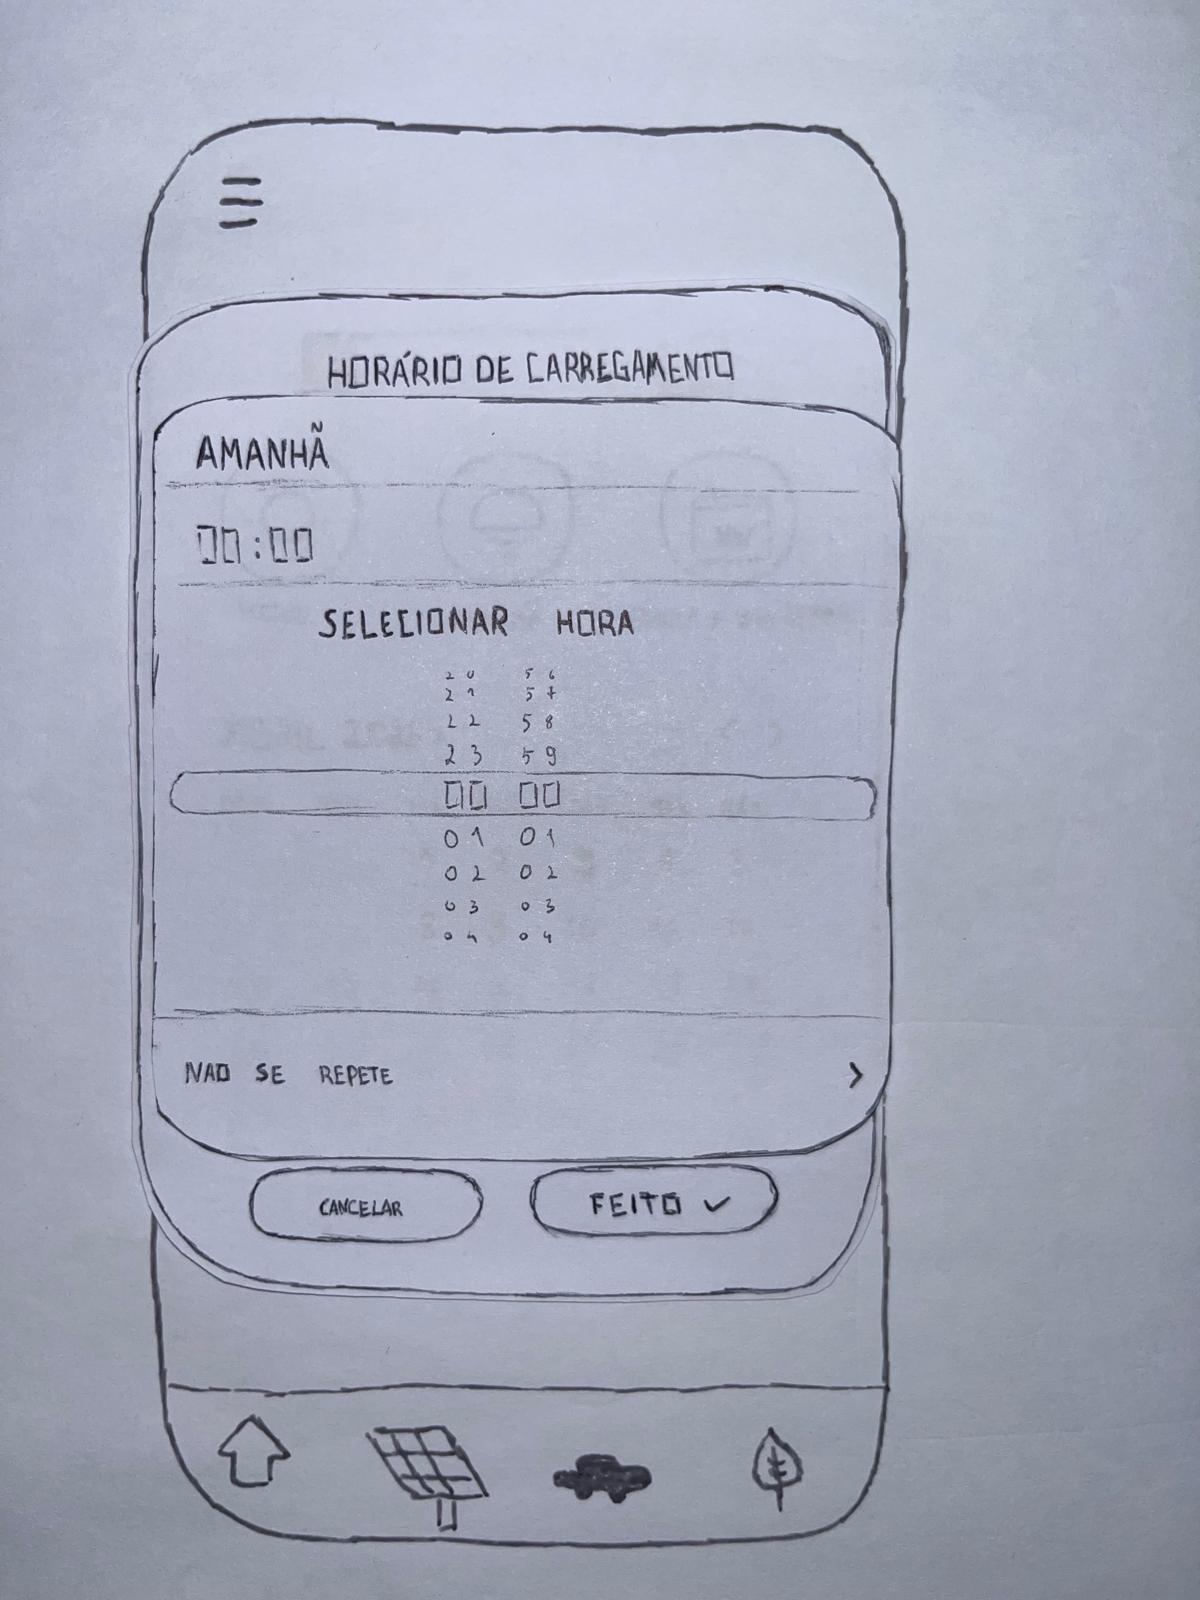 HORÁRIO DE CARREGAMENTO
AMANHÃ
00:00
SELECIONAR HORA
20 56
21 57
22 58
23 59
00 00
01 01
02 02
03 03
04 04
NAO SE REPETE >
CANCELAR
FEITO ✓